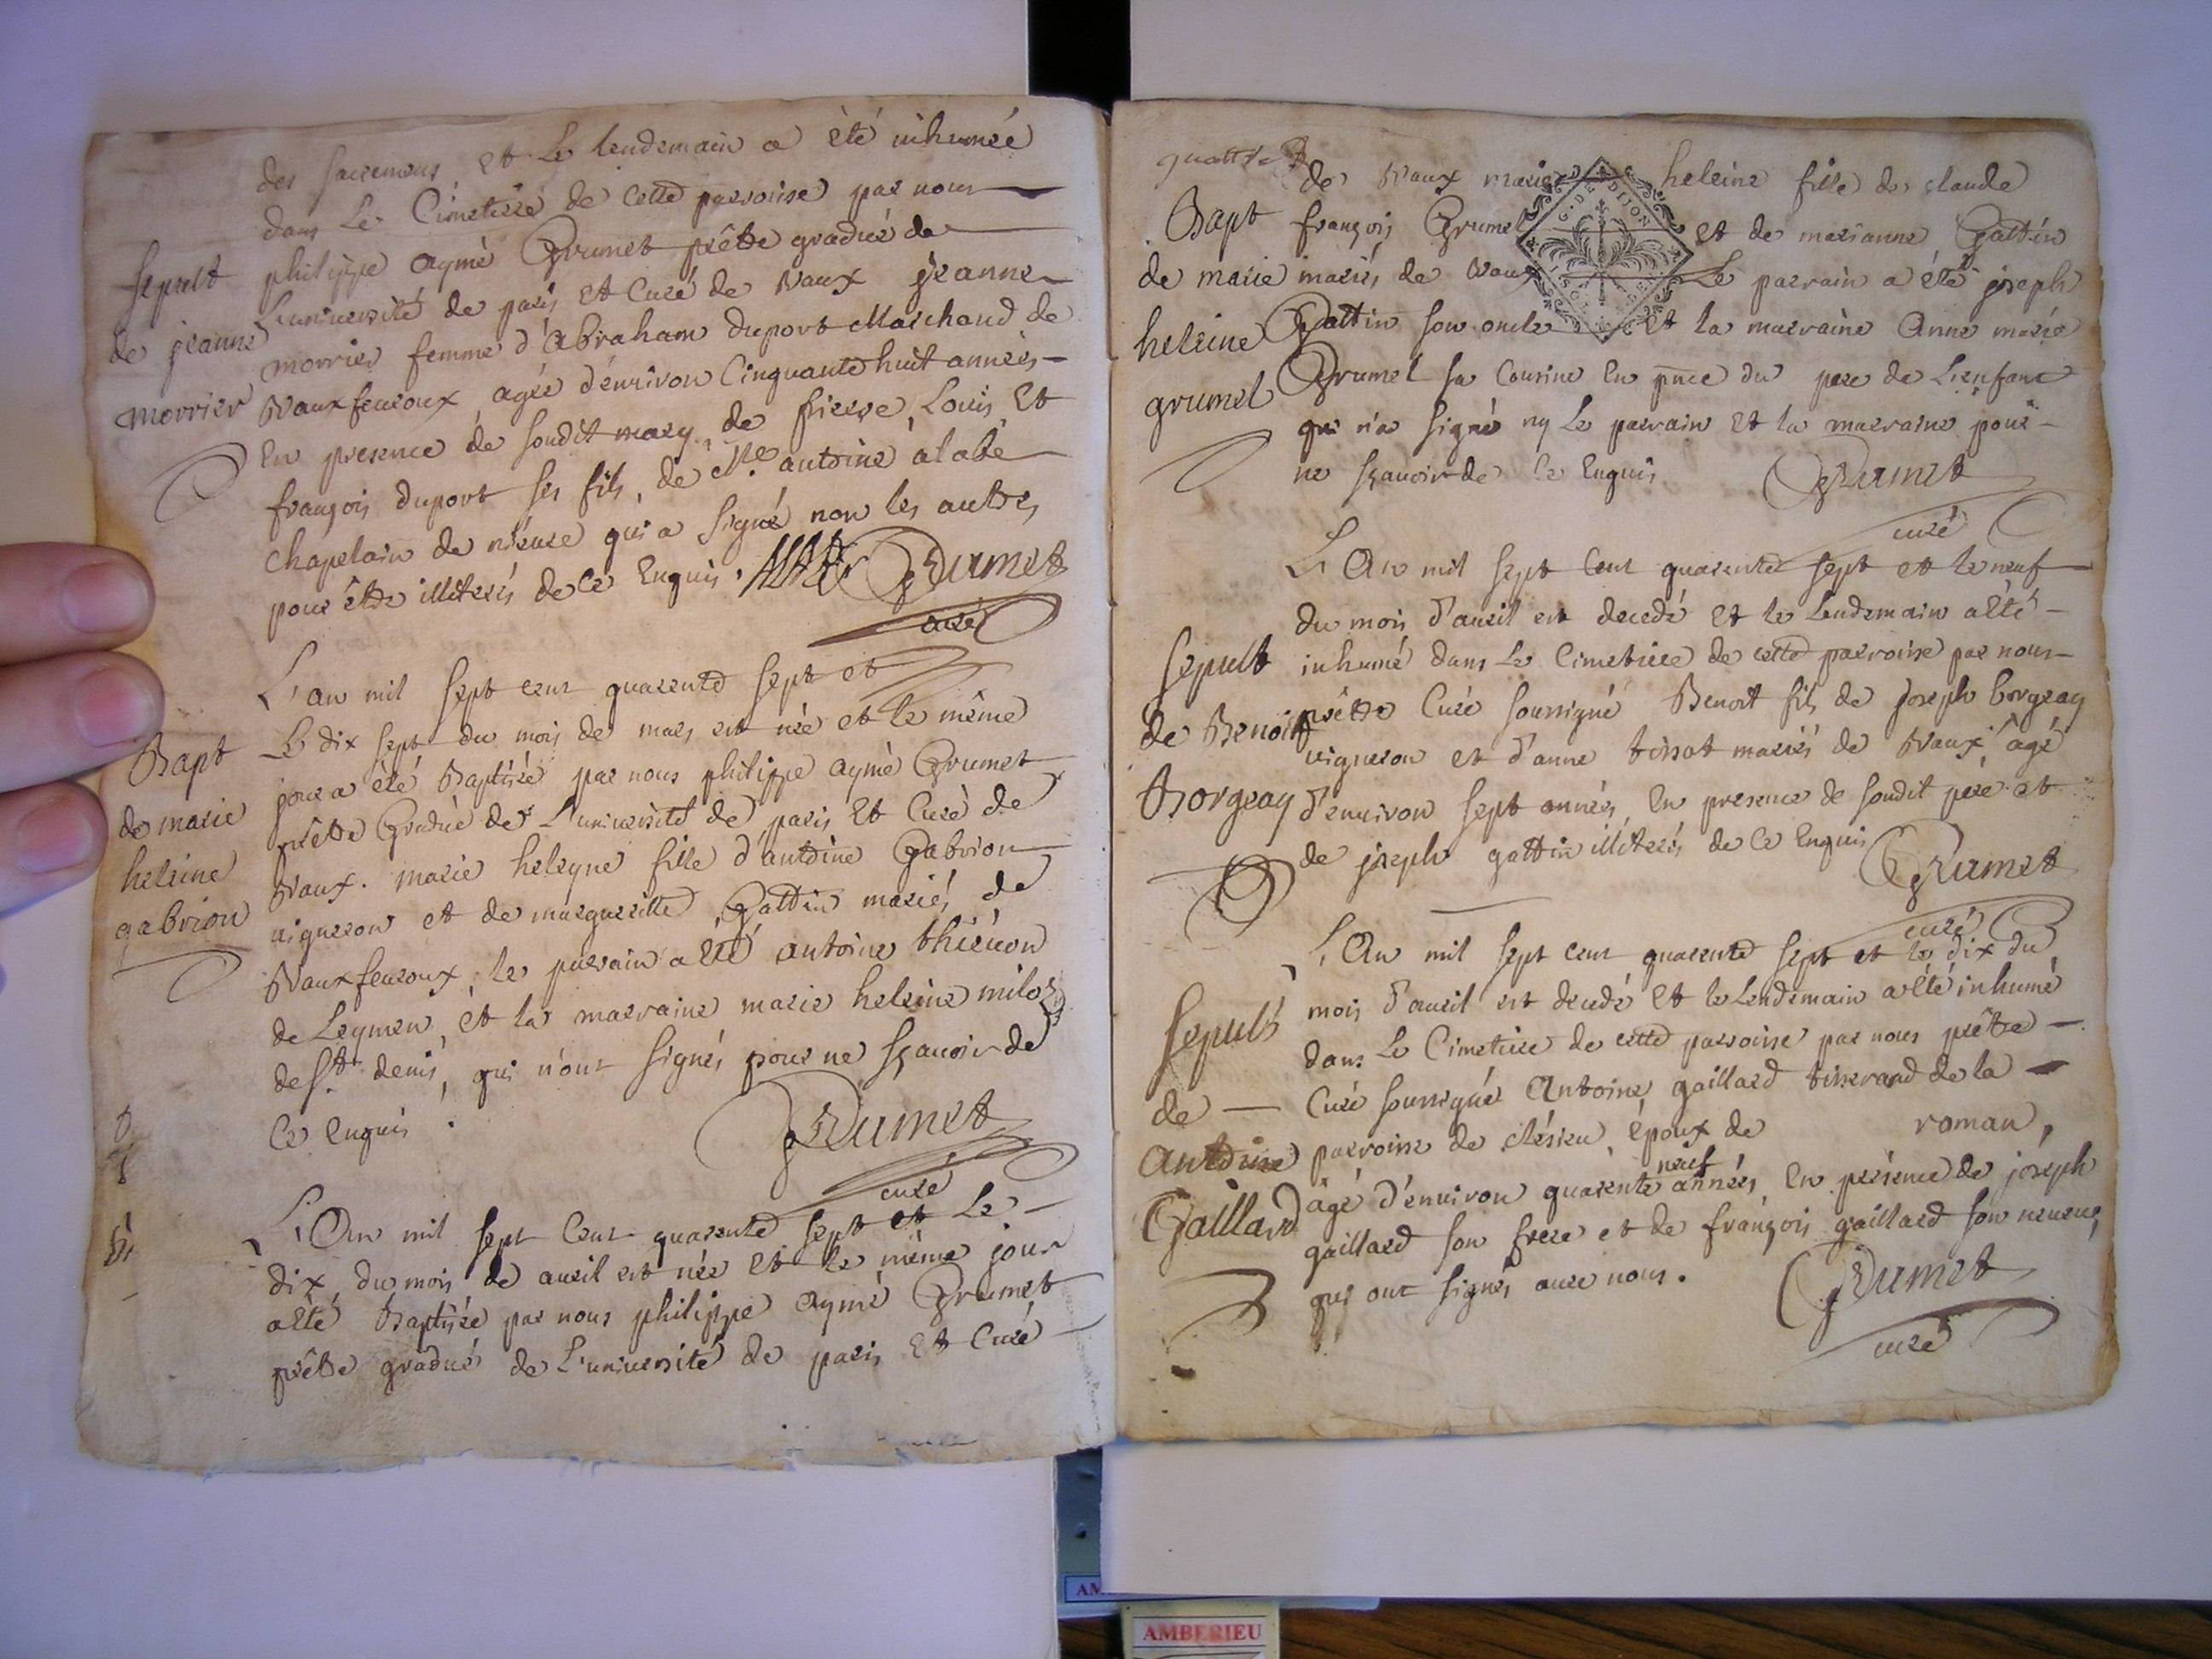 des sacremens et Le lendemain a été inhumée
dans Le Cimetiere de cette parroisse par nous
philippe aymé Grumet prêtre gradué de
L'université de paris et Curé de Vaux jeanne
morrier femme d'Abraham duport Marchand de
Vauxfevroux agée d'environ Cinquante huit années
En presence de soudit mary, de pierre, Louis Et
françois duport ses fils, de Mre antoine alabe
chapelain de nieuse qui a signé non les autres
pour être illiterés de ce Enquis. Grumet
curé
sepult
de jeanne
morrier
L'an mil sept cent quarente sept et
Le dix sept du mois de mars est née et le même
jour a été Baptisée par nous philippe aymé Grumet
prêtre Gradué de L'université de paris Et Curé de
Vaux. marie heleyne fille d'antoine Gabrion
vigneron et de margueritte Gattin mariés de
Vauxfevroux, le parrain a Eté antoine thiévon
de Leymen, et la marraine marie heleine miloz
de St. denis, qui n'ont signés pour ne sçavoir de
ce Enquis. Grumet
curé
Bapt
de marie
heleine
gabrion
L'An mil sept Cent quarente sept et Le
dix du mois de avril est née Et le même jour
a Eté Baptisée par nous philippe aymé Grumet
prêtre gradué de L'université de paris Et Curé
quattre
de Vaux marie heleine fille de claude
françois Grumet et de marianne Gattin
mariés de Vaux Le parrain a été joseph
Gattin son oncle Et la marraine Anne marie
Grumet sa Cousine En pnce du pere de L'enfant
qui n'a signé ny Le parrain Et la marraine pour
ne sçavoir de ce Enquis Grumet
curé
Bapt
de marie
heleine
grumet
G. D. DE DIJON
L'An mil sept Cent quarente sept et le neuf
du mois d'avril est decedé Et le lendemain a Eté
inhumé dans Le Cimetiere de cette parroisse par nous
prêtre Curé soussigné Benoit fils de joseph borgeay
vigneron et d'anne tissot mariés de Vaux agé
d'environ sept années, En presence de soudit pere et
de joseph gattin illiterés de ce Enquis Grumet
curé
sepult
de Benoit
Borgeay
L'An mil sept cent quarente sept et le dix du
mois d'avril est decedé Et le Lendemain a été inhumé
dans Le Cimetiere de cette parroisse par nous prêtre
Curé soussigné Antoine gaillard tisserand de la
parroisse de clésieu, époux de roman,
âgé d'environ quarente neuf années, En présence de joseph
gaillard son frere et de françois gaillard son neveu,
qui ont signés avec nous. Grumet
curé
sepult
de
Antoine
Gaillard
AMBERIEU